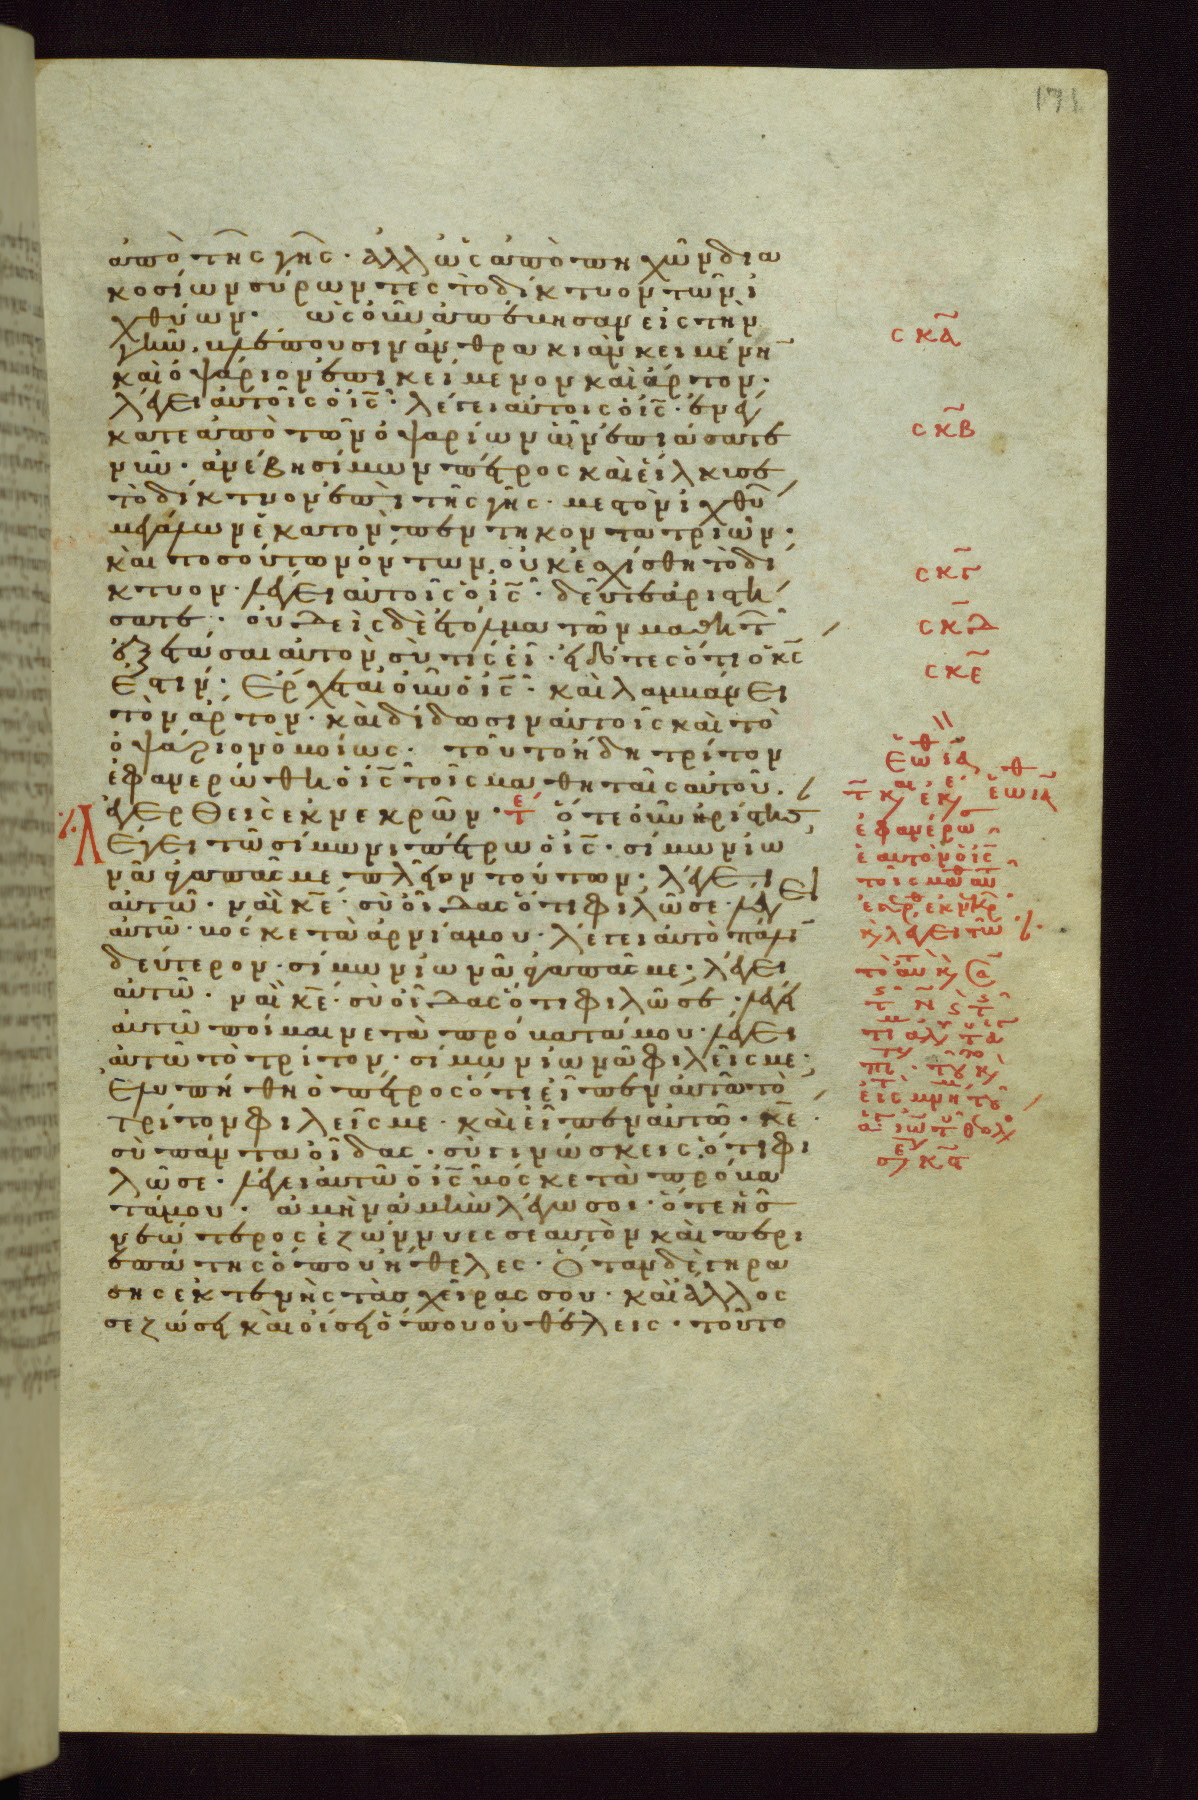 171
ἀπὸ τῆς γῆς· ἀλλ ὡς ἀπὸ πηχῶν δια
κοσίων σύρωντες τὸ δίκτυον τῶν ἰ
χθύων· ὡς οὖν ἀπέβησαν εἰς τὴν
γῆν, βλέπουσιν ἀνθρακιὰν κειμένη̅
καὶ ὀψάριον ἐπικείμενον καὶ ἄρτον·
λέγει αὐτοῖς ὁ ἰς̅· ἐνέγ
κατε ἀπὸ τῶν ὀψαρίων ὧν ἐπιάσατε
νῦν· ἀνέβη σίμων πέτρος καὶ εἵλκυσε
τὸ δίκτυον ἐπὶ τῆς γῆς· μεστὸν ἰχθύ
μεγάλων ἑκατὸν πεντηκοντατριῶν·
καὶ τοσούτων ὄντων, οὐκ ἐσχίσθη τὸ δί
κτυον· λέγει αὐτοῖς ὁ ἰς̅· δεῦτε ἀριστή
σατε· οὐδεὶς δὲ ἐτόλμα τῶν μαθητ̅
ἐξετάσαι αὐτὸν σὺ τίς εἶ· εἰδότες ὅτι ὁ κς̅
ἐστιν· ἔρχεται οὖν ὁ ἰς̅· καὶ λαμβάνει
τὸν ἄρτον· καὶ δίδωσιν αὐτοῖς καὶ τὸ
ὀψάριον ὁμοίως· τοῦτο ἤδη τρίτον
ἐφανερώθη ὁ ἰς̅ τοῖς μαθηταῖς αὐτοῦ·
ἐγερθεὶς ἐκ νεκρῶν· ὅτε οὖν ἠρίστησ
Λέγει τῶ σίμωνι πέτρω ὁ ἰς̅· σίμων ἰω
νᾶ ἀγαπᾶς με πλεῖον τούτων· λέγει
αὐτῶ· ναὶ κε̅· σὺ οἶδας ὅτι φιλῶ σε· λέγει
αὐτῶ· βόσκε τὰ ἀρνία μου· λέγει αὐτὸ πάλι̅
δεύτερον· σίμων ἰωνᾶ ἀγαπᾶς με· λέγει
αὐτῶ· ναὶ κε̅· σὺ οἶδας ὅτι φιλῶ σε· λέγει
αὐτῶ ποίμαινε τὰ πρόβατά μου· λέγει
αὐτῶ τὸ τρίτον· σίμων ἰωνᾶ φιλεῖς με·
ἐλυπήθη ὁ πέτρος ὅτι εἶπεν αὐτῶ τὸ
τρίτον φιλεῖς με· καὶ εἶπεν αὐτῶ· κε̅·
σὺ πάντα οἶδας· σὺ γινώσκεις ὅτι φι
λῶ σε· λέγει αὐτῶ ὁ ἰς̅ βόσκε τὰ πρόβα
τά μου· ἀμὴν ἀμὴν λέγω σοι· ὅτε ἦς
νεώτερος ἐζώννυες σεαυτὸν καὶ περι
επάτης ὅπου ἤθελες· ὅταν δὲ γηρά
σης ἐκτενῆς τὰς χεῖρας σου· καὶ ἄλλος
σε ζώσει καὶ οἴσει ὅπου οὐ θέλεις· τοῦτο
σκα̅
σκβ̅
σκγ̅
σκδ̅
σκε̅
ἐφανέρω
ἑαυτὸν ὁ ἰς̅